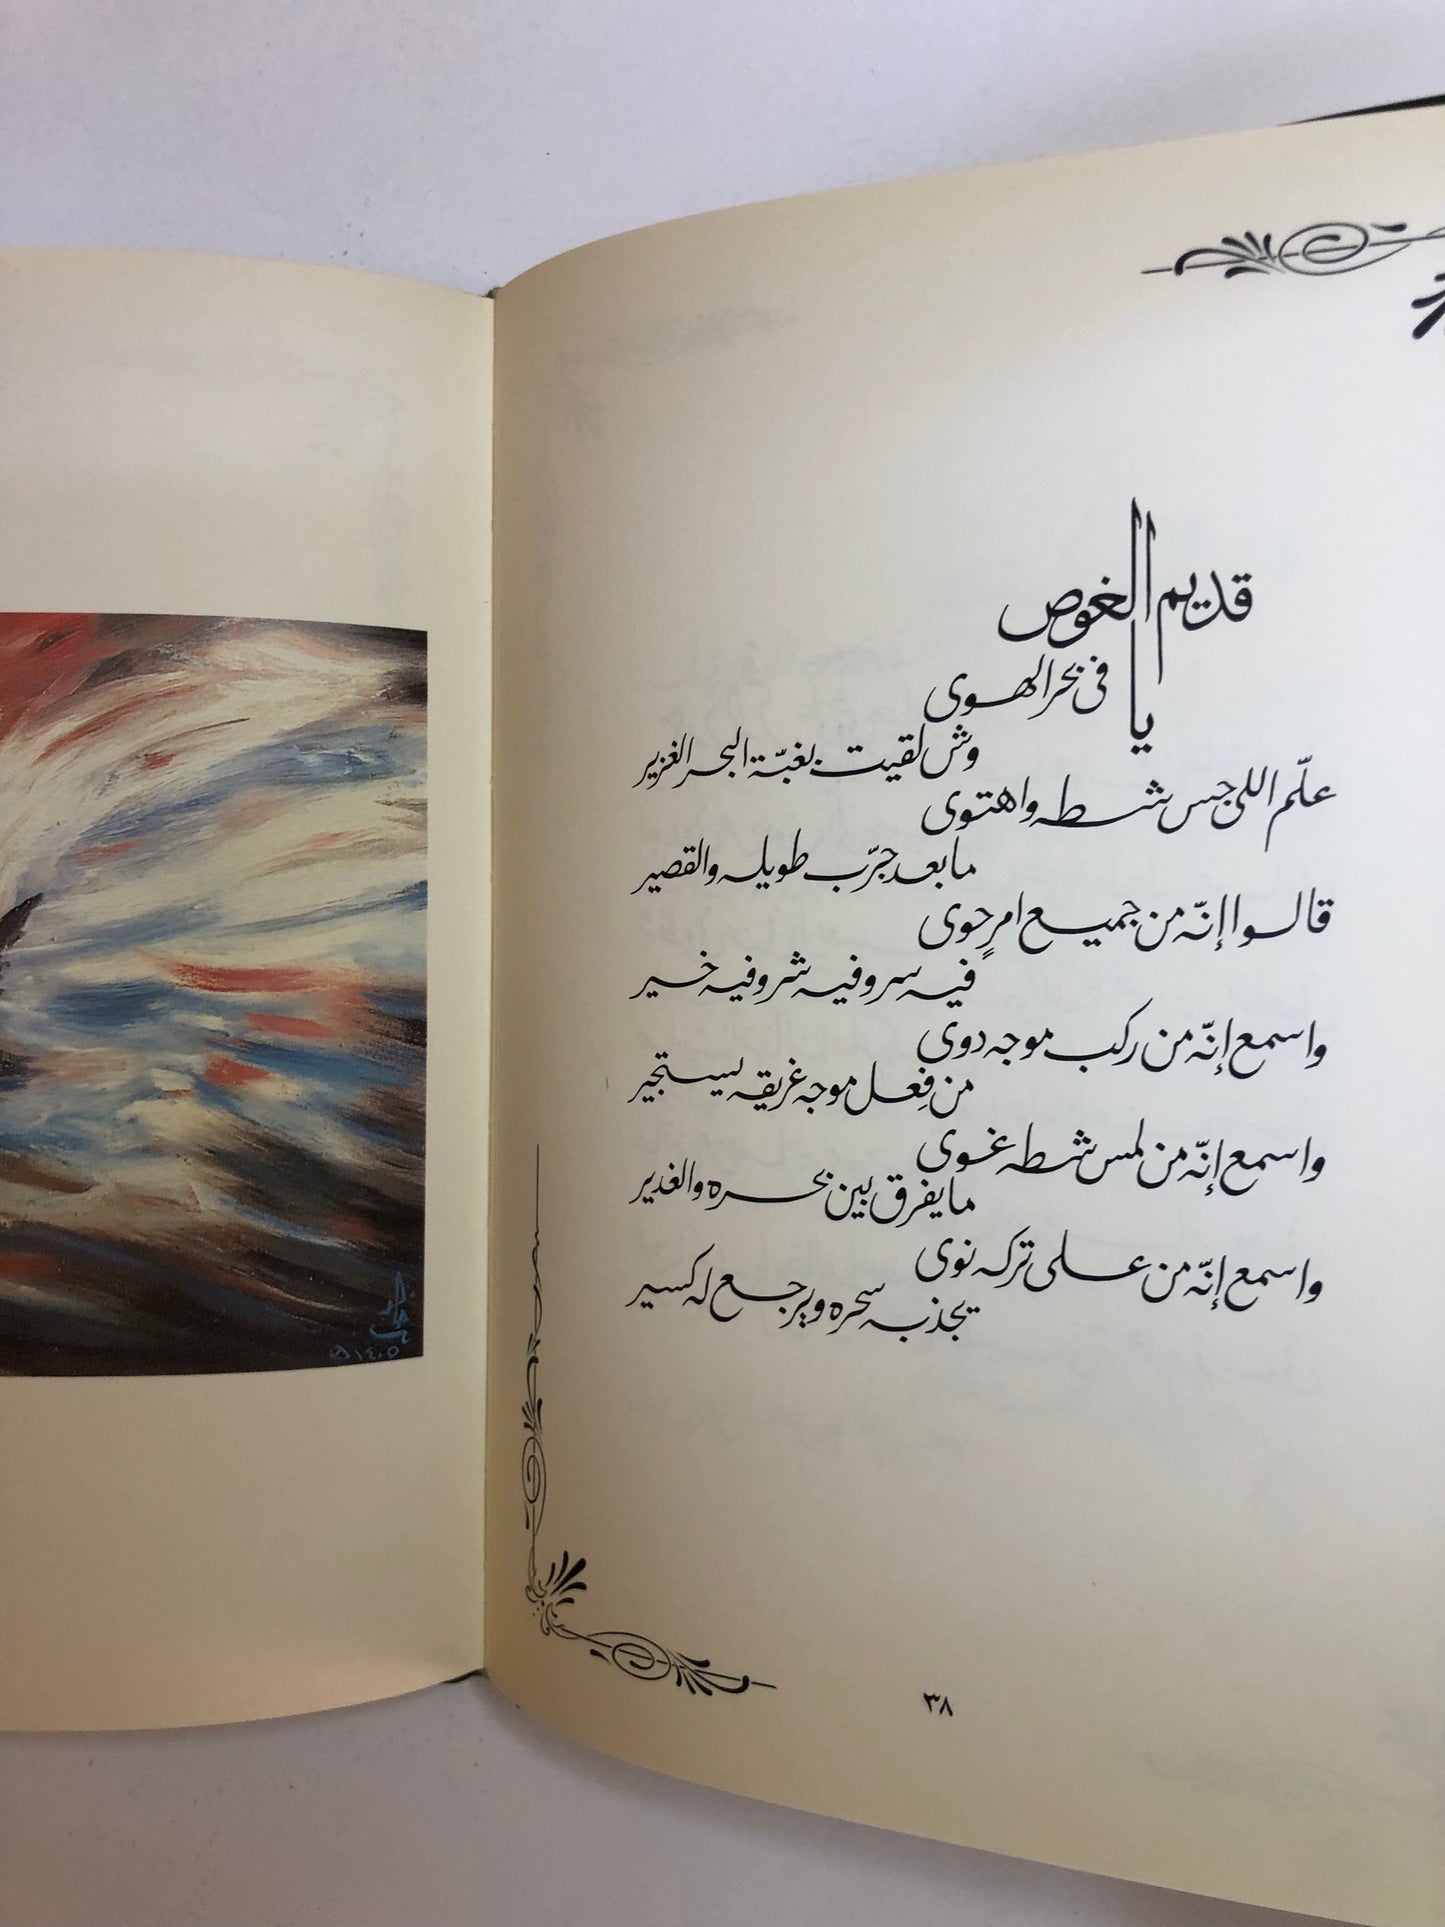 يا قديم الغوص
في بحر الهوى
وش لقيت بغبّة البحر الغزير
علّم اللي جس شطه واهتوى
ما بعد جرّب طويله والقصير
قالوا إنّه من جميع امرٍ حوى
فيه سر وفيه شر وفيه خير
واسمع إنّه من ركب موجه دوى
من فِعل موجه غريقه يستجير
واسمع إنّه من لمس شطه غوى
ما يفرق بين بحره والغدير
واسمع إنّه من على تركه نوى
يجذبه سحره ويرجع له كسير
٣٨
١٤٠٥هـ